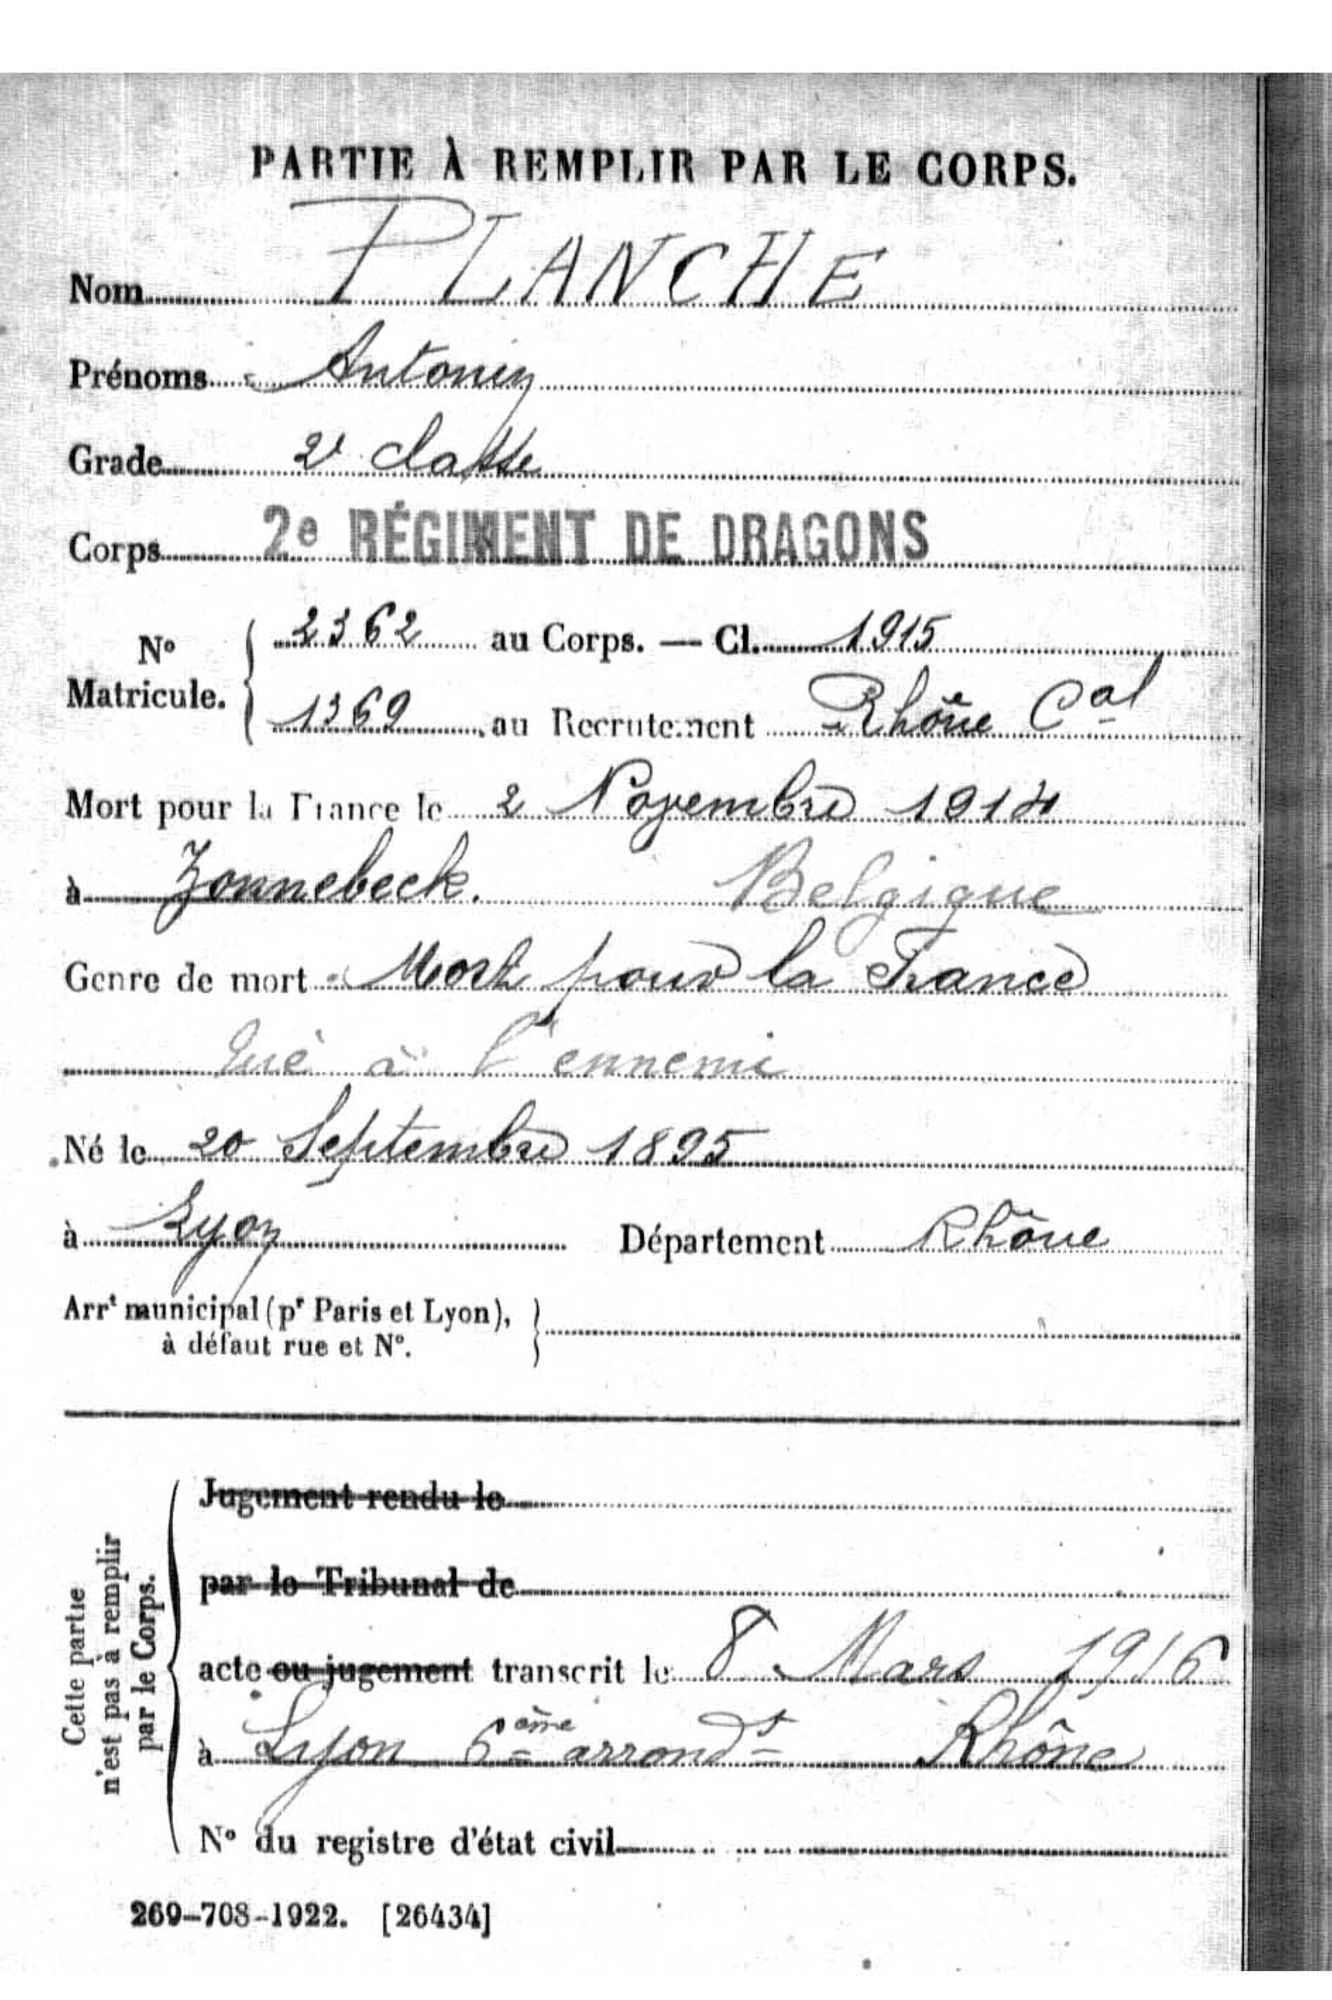 PARTIE À REMPLIR PAR LE CORPS.
Nom PLANCHE
Prénoms Antonin
Grade 2e classe
Corps 2e RÉGIMENT DE DRAGONS
No Matricule. 2362 au Corps. — Cl. 1915
1369 au Recrutement Rhône Cal
Mort pour la France le 2 Novembre 1914
à Zonnebeck. Belgique
Genre de mort Mort pour la France
Tué à l'ennemi
Né le 20 Septembre 1895
à Lyon Département Rhône
Arrt municipal (pr Paris et Lyon),
à défaut rue et No.
Cette partie
n'est pas à remplir
par le Corps.
Jugement rendu le
par le Tribunal de
acte ou jugement transcrit le 8 Mars 1916
à Lyon 6ème arrondt Rhône
No du registre d'état civil
269-708-1922. [26434]